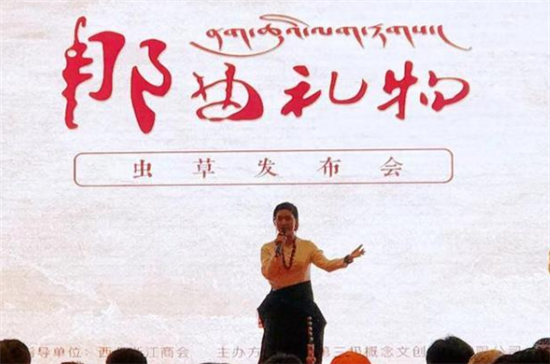 那曲礼物
虫草发布会
指导单位：西 浙江商会 主办方 第三极概念文创 限公司